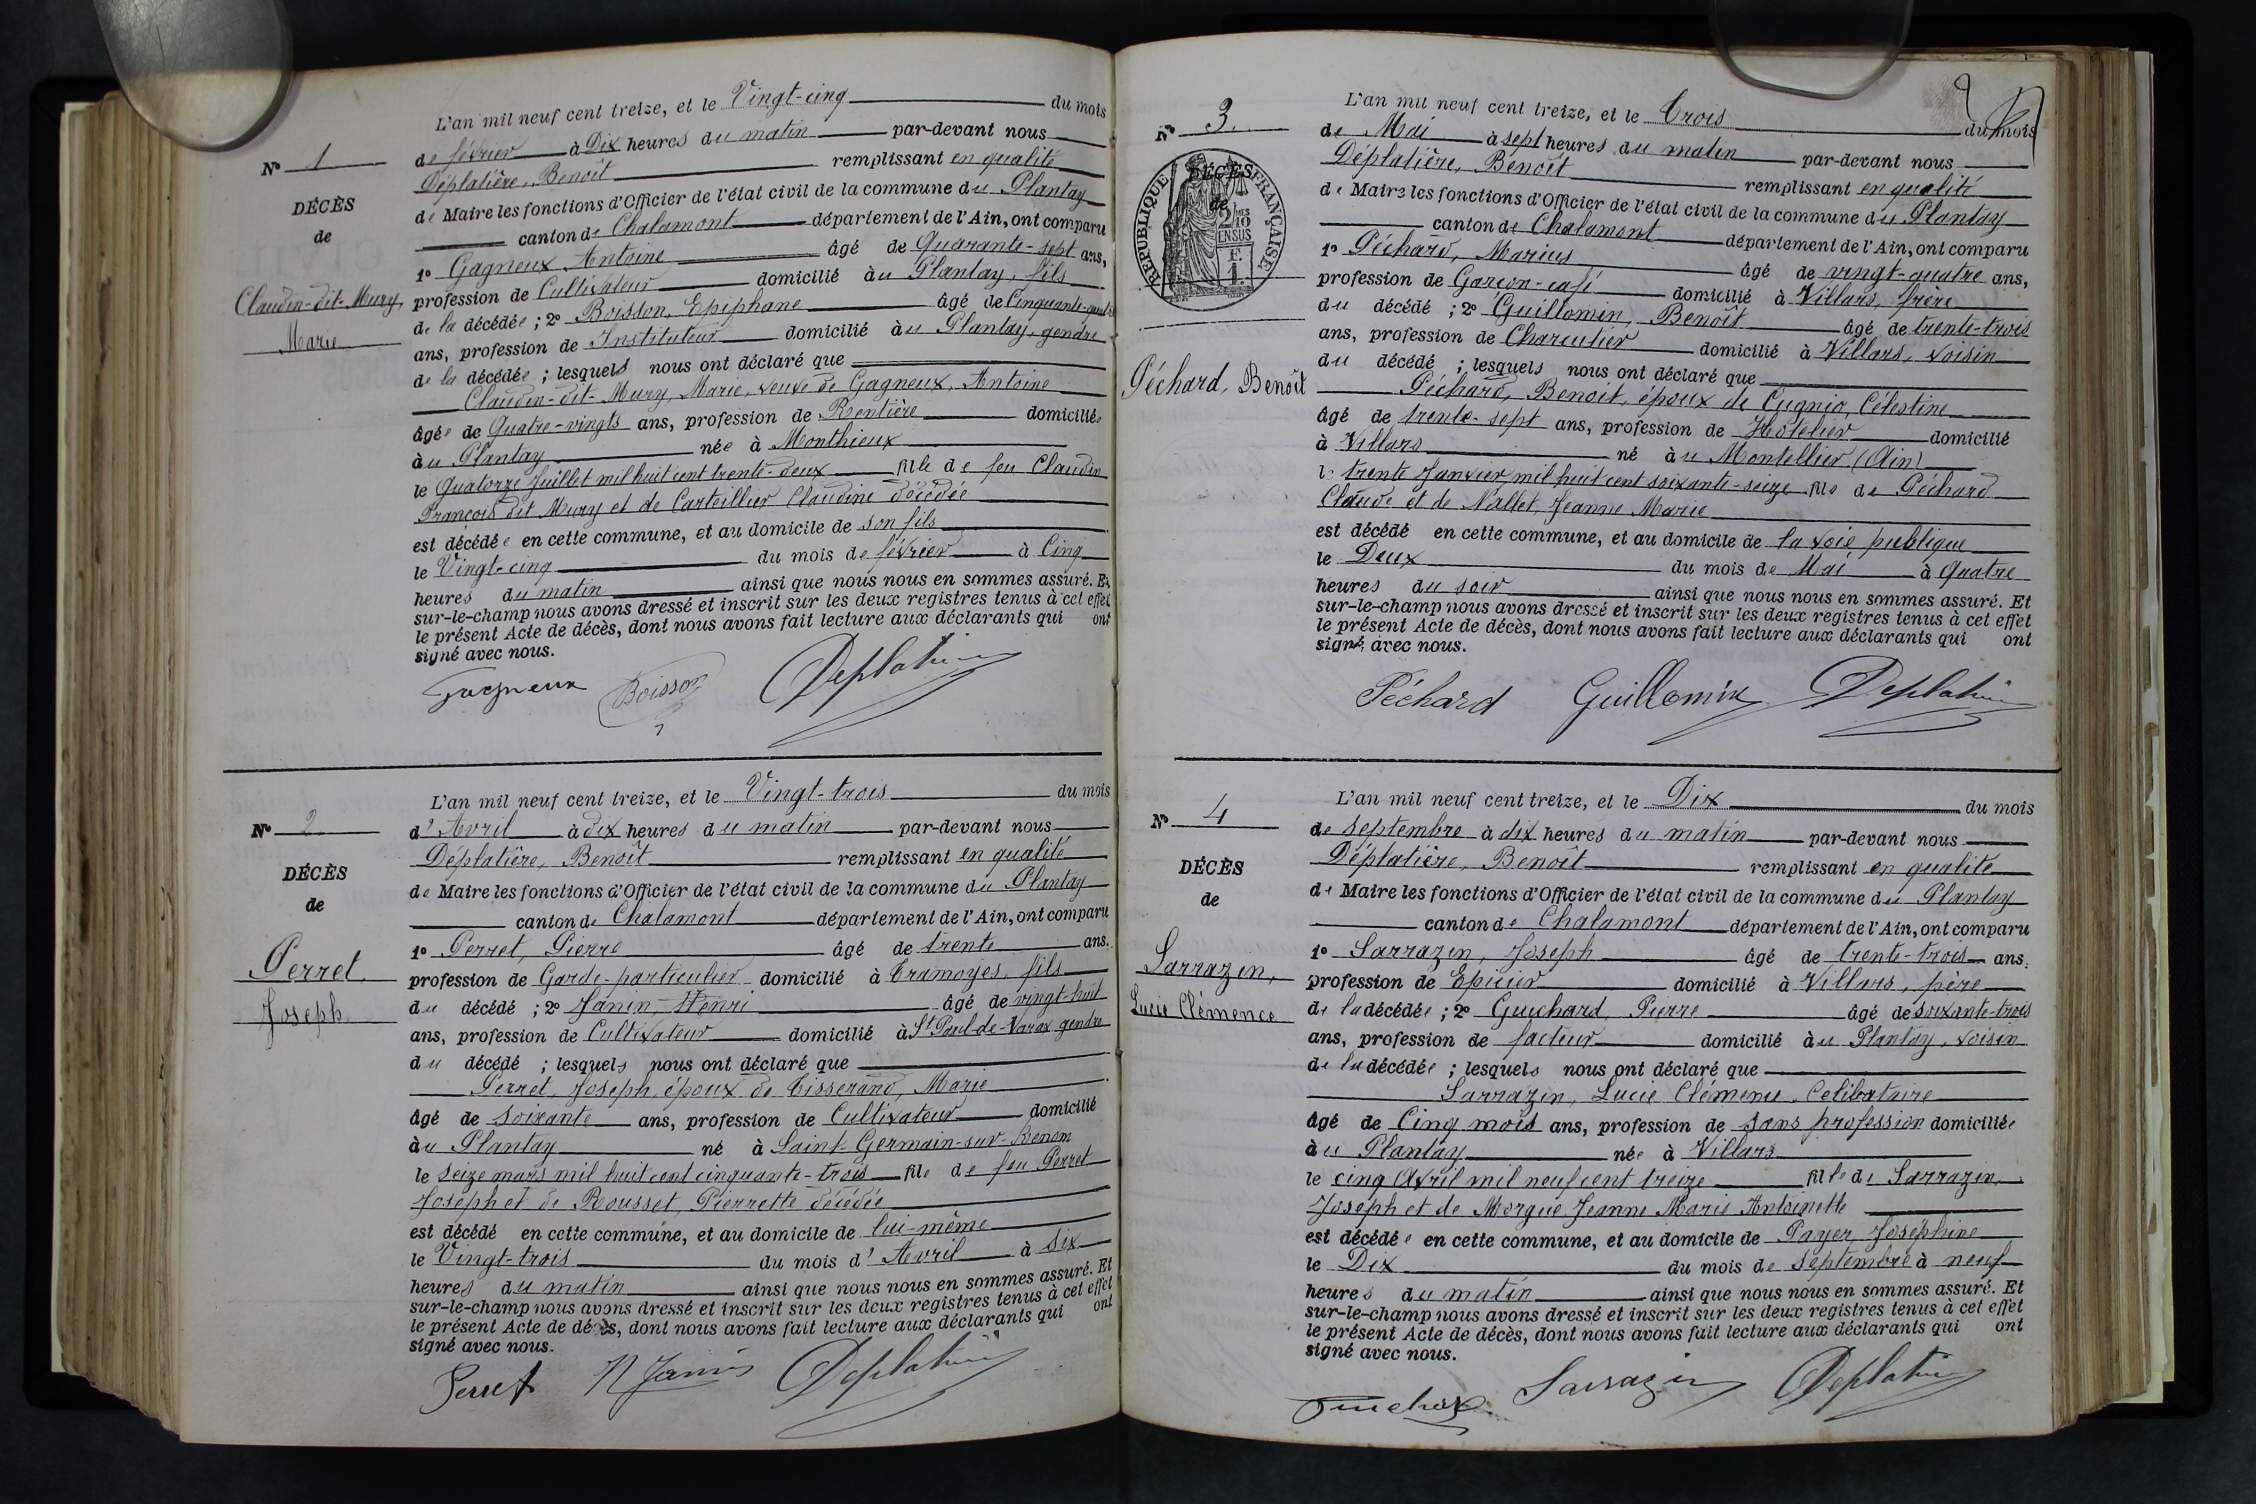 L'an mil neuf cent treize, et le Vingt-cinq du mois
de février à Dix heures du matin par-devant nous
Déplatière, Benoît remplissant en qualité
de Maire les fonctions d'Officier de l'état civil de la commune du Plantay
canton de Chalamont département de l'Ain, ont comparu
1º Gagneux Antoine âgé de Quarante-sept ans,
profession de Cultivateur domicilié au Plantay, fils
de la décédée ; 2º Boisson, Epiphane âgé de Cinquante-quatre
ans, profession de Instituteur domicilié au Plantay, gendre
de la décédée ; lesquels nous ont déclaré que
Claudin-dit-Mury, Marie, veuve de Gagneux, Antoine
âgée de Quatre-vingts ans, profession de Rentière domiciliée
au Plantay née à Monthieux
le Quatorze Juillet mil huit cent trente-deux fille de feu Claudin
François dit Mury et de Carteillier Claudine décédée
est décédée en cette commune, et au domicile de son fils
le Vingt-cinq du mois de février à Cinq
heures du matin ainsi que nous nous en sommes assuré. Et
sur-le-champ nous avons dressé et inscrit sur les deux registres tenus à cet effet
le présent Acte de décès, dont nous avons fait lecture aux déclarants qui ont
signé avec nous.
Gagneux Boisson Deplatière
Nº 1
DÉCÈS
de
Claudin-dit-Mury,
Marie
L'an mil neuf cent treize, et le Vingt-trois du mois
d'Avril à dix heures du matin par-devant nous
Déplatière, Benoît remplissant en qualité
de Maire les fonctions d'Officier de l'état civil de la commune du Plantay
canton de Chalamont département de l'Ain, ont comparu
1º Perret, Pierre âgé de trente ans.
profession de Garde-particulier domicilié à Tramoyes, fils
du décédé ; 2º Janin, Henri âgé de vingt-huit
ans, profession de Cultivateur domicilié à St Paul-de-Varax gendre
du décédé ; lesquels nous ont déclaré que
Perret, Joseph, époux de Tisserand, Marie
âgé de soixante ans, profession de Cultivateur domicilié
au Plantay né à Saint-Germain-sur-Renom
le seize mars mil huit cent cinquante-trois fils de feu Perret
Joseph et de Rousset, Pierrette décédée
est décédé en cette commune, et au domicile de lui-même
le Vingt-trois du mois d'Avril à six
heures du matin ainsi que nous nous en sommes assuré. Et
sur-le-champ nous avons dressé et inscrit sur les deux registres tenus à cet effet
le présent Acte de décès, dont nous avons fait lecture aux déclarants qui ont
signé avec nous.
Perret H Janin Deplatière
Nº 2
DÉCÈS
de
Perret,
Joseph
L'an mil neuf cent treize, et le Trois du mois
de Mai à sept heures du matin par-devant nous
Déplatière, Benoît remplissant en qualité
de Maire les fonctions d'Officier de l'état civil de la commune du Plantay
canton de Chalamont département de l'Ain, ont comparu
1º Péchard, Marius âgé de vingt-quatre ans,
profession de Garçon-café domicilié à Villars, frère
du décédé ; 2º Guillomin, Benoît âgé de trente-trois
ans, profession de Charcutier domicilié à Villars, voisin
du décédé ; lesquels nous ont déclaré que
Péchard, Benoit, époux de Cugnio, Célestine
âgé de trente-sept ans, profession de Hôtelier domicilié
à Villars né au Montellier (Ain)
le trente Janvier mil huit cent soixante-seize fils de Péchard
Claude et de Nallet, Jeanne Marie
est décédé en cette commune, et au domicile de la voie publique
le Deux du mois de Mai à Quatre
heures du soir ainsi que nous nous en sommes assuré. Et
sur-le-champ nous avons dressé et inscrit sur les deux registres tenus à cet effet
le présent Acte de décès, dont nous avons fait lecture aux déclarants qui ont
signé avec nous.
Péchard Guillomin Deplatière
Nº 3.
DÉCÈS
de
RÉPUBLIQUE FRANÇAISE
2/10 EN SUS
F. 1.
Péchard, Benoît
L'an mil neuf cent treize, et le Dix du mois
de septembre à dix heures du matin par-devant nous
Déplatière, Benoît remplissant en qualité
de Maire les fonctions d'Officier de l'état civil de la commune du Plantay
canton de Chalamont département de l'Ain, ont comparu
1º Sarrazin, Joseph âgé de trente-trois ans.
profession de Epicier domicilié à Villars, père
de la décédée ; 2º Guichard, Pierre âgé de soixante-trois
ans, profession de facteur domicilié au Plantay, voisin
de la décédée ; lesquels nous ont déclaré que
Sarrazin, Lucie Clémence Célibataire
âgé de Cinq mois ans, profession de sans profession domiciliée
au Plantay née à Villars
le cinq Avril mil neuf cent treize fille de Sarrazin,
Joseph et de Morgue Jeanne Marie Antoinette
est décédée en cette commune, et au domicile de Payer Joséphine
le Dix du mois de septembre à neuf
heures du matin ainsi que nous nous en sommes assuré. Et
sur-le-champ nous avons dressé et inscrit sur les deux registres tenus à cet effet
le présent Acte de décès, dont nous avons fait lecture aux déclarants qui ont
signé avec nous.
Guichard Sarrazin Deplatière
Nº 4
DÉCÈS
de
Sarrazin,
Lucie Clémence